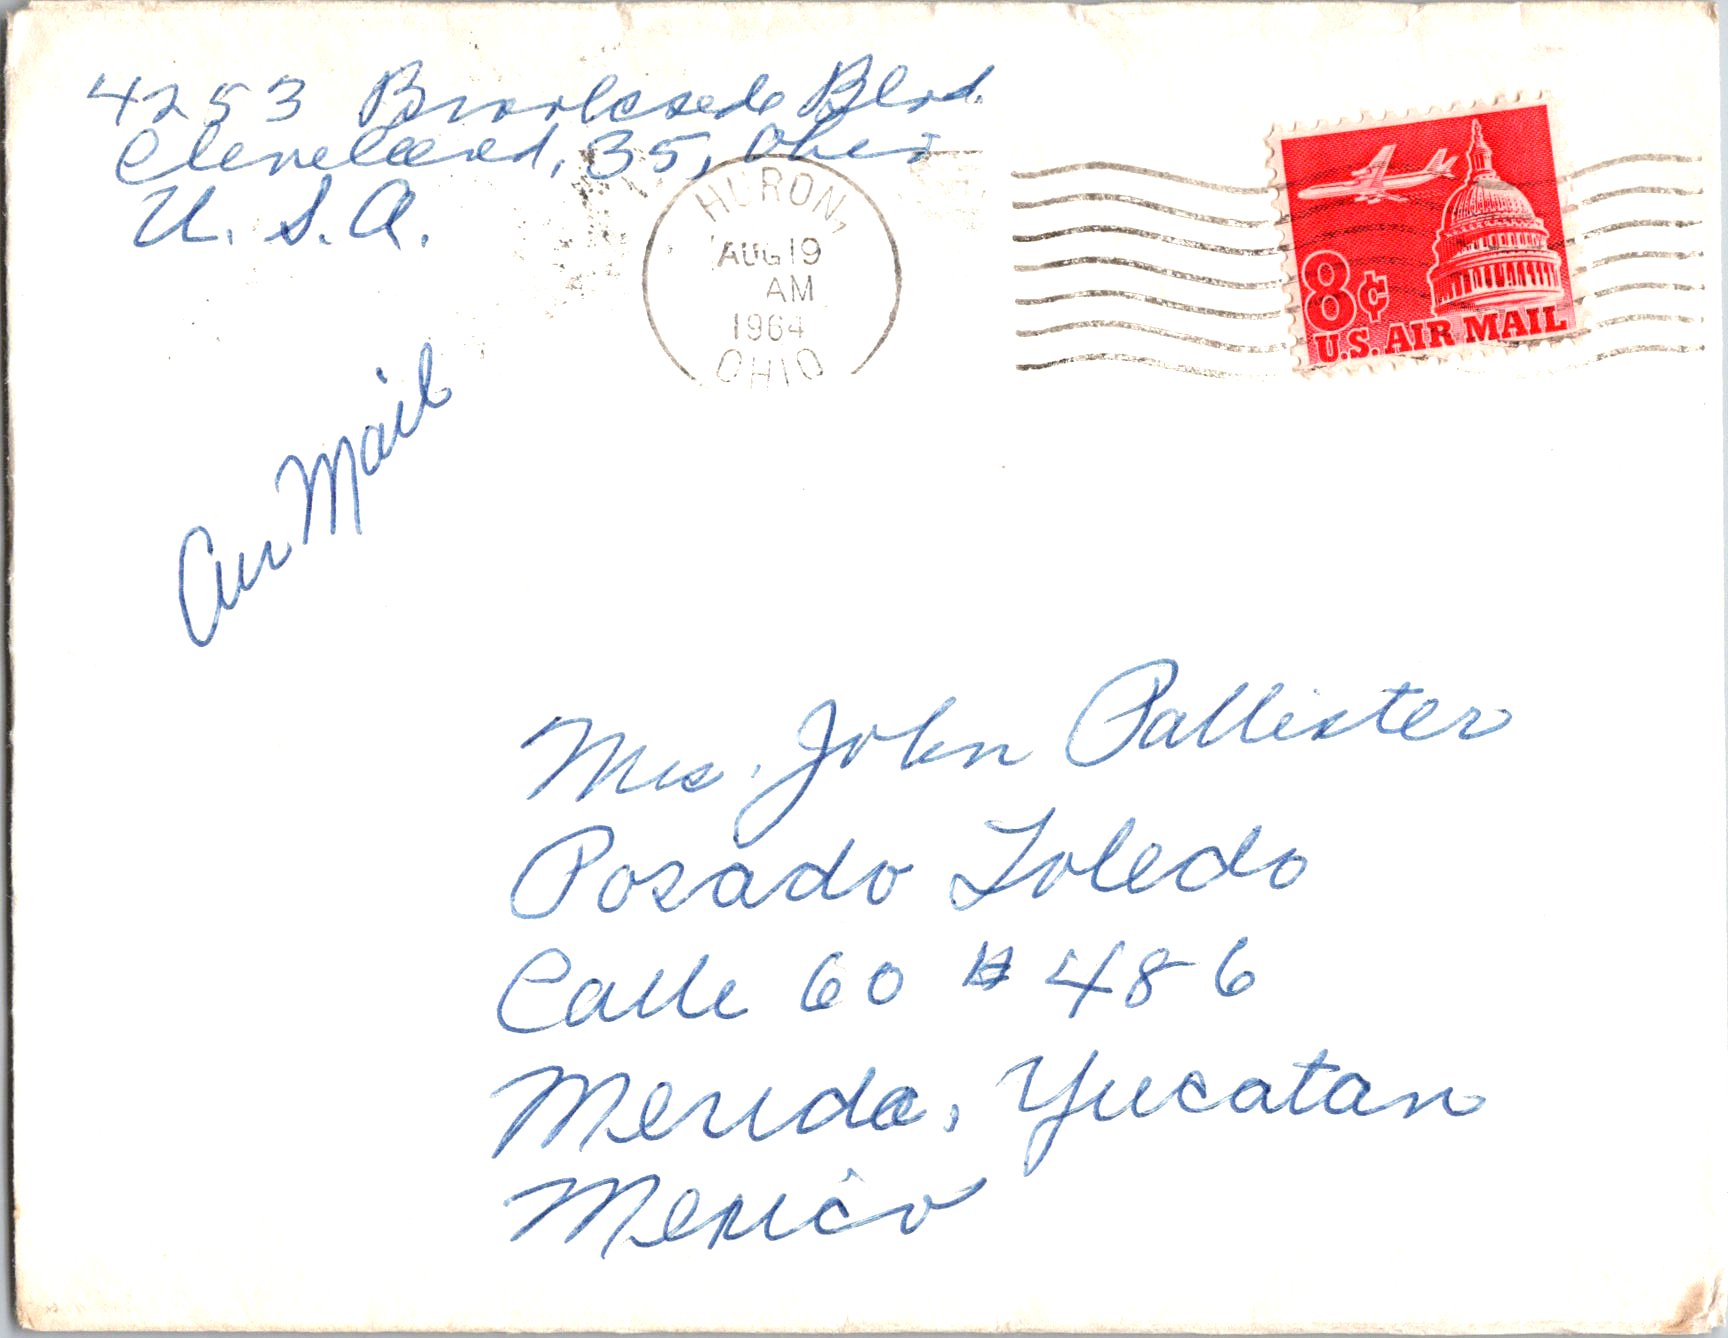 4253 Brookside Blvd.
Cleveland, 35, Ohio
U. S. A.
HURON,
AUG 19
AM
1964
OHIO
8¢
U.S. AIR MAIL
Air Mail
Mrs. John Pallister
Posado Toledo
Calle 60 # 486
Merida, Yucatan
Mexico